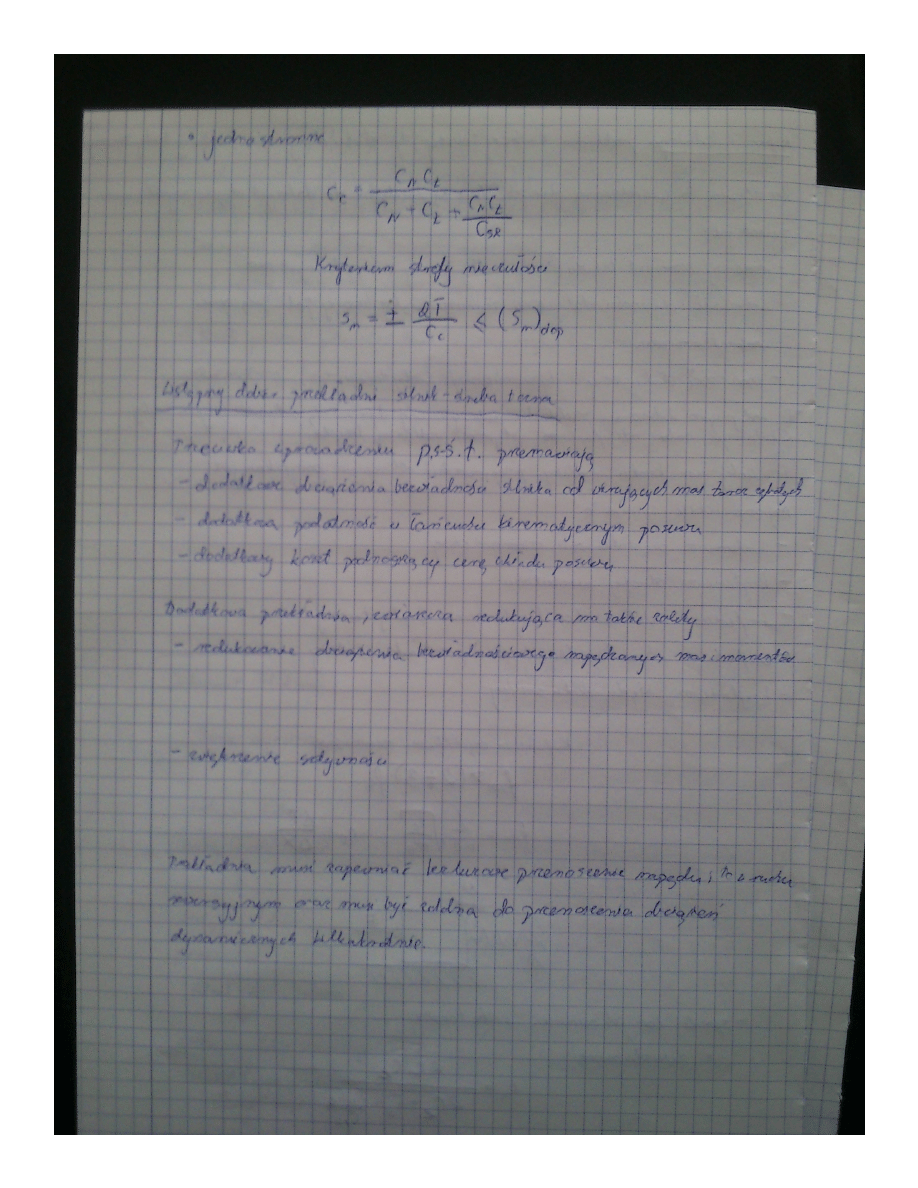 • jednostronne
C_c = C_N C_t / (C_N + C_t + C_N C_t / C_śr)
Kryterium strefy nieczułości
S_n = ± 2T / C_c ≤ (S_n)dop
Wstępny dobór przekładni silnik-śruba toczna
Przeciwko wprowadzeniu p.s-ś.t. przemawiają
- dodatkowe obciążenia bezwładności silnika od wirujących mas
- dodatkowa podatność w łańcuchu kinematycznym posuwu
- dodatkowy koszt podnoszący cenę układu posuwu
Dodatkowa przekładnia, redukująca ma także zalety
- redukowanie obciążenia bezwładnościowego napędzanych mas i momentów
- zwiększenie sztywności
Przekładnia musi zapewniać bezluzowe przenoszenie napędu, w ruchu
rewersyjnym oraz musi być zdolna do przenoszenia obciążeń
dynamicznych